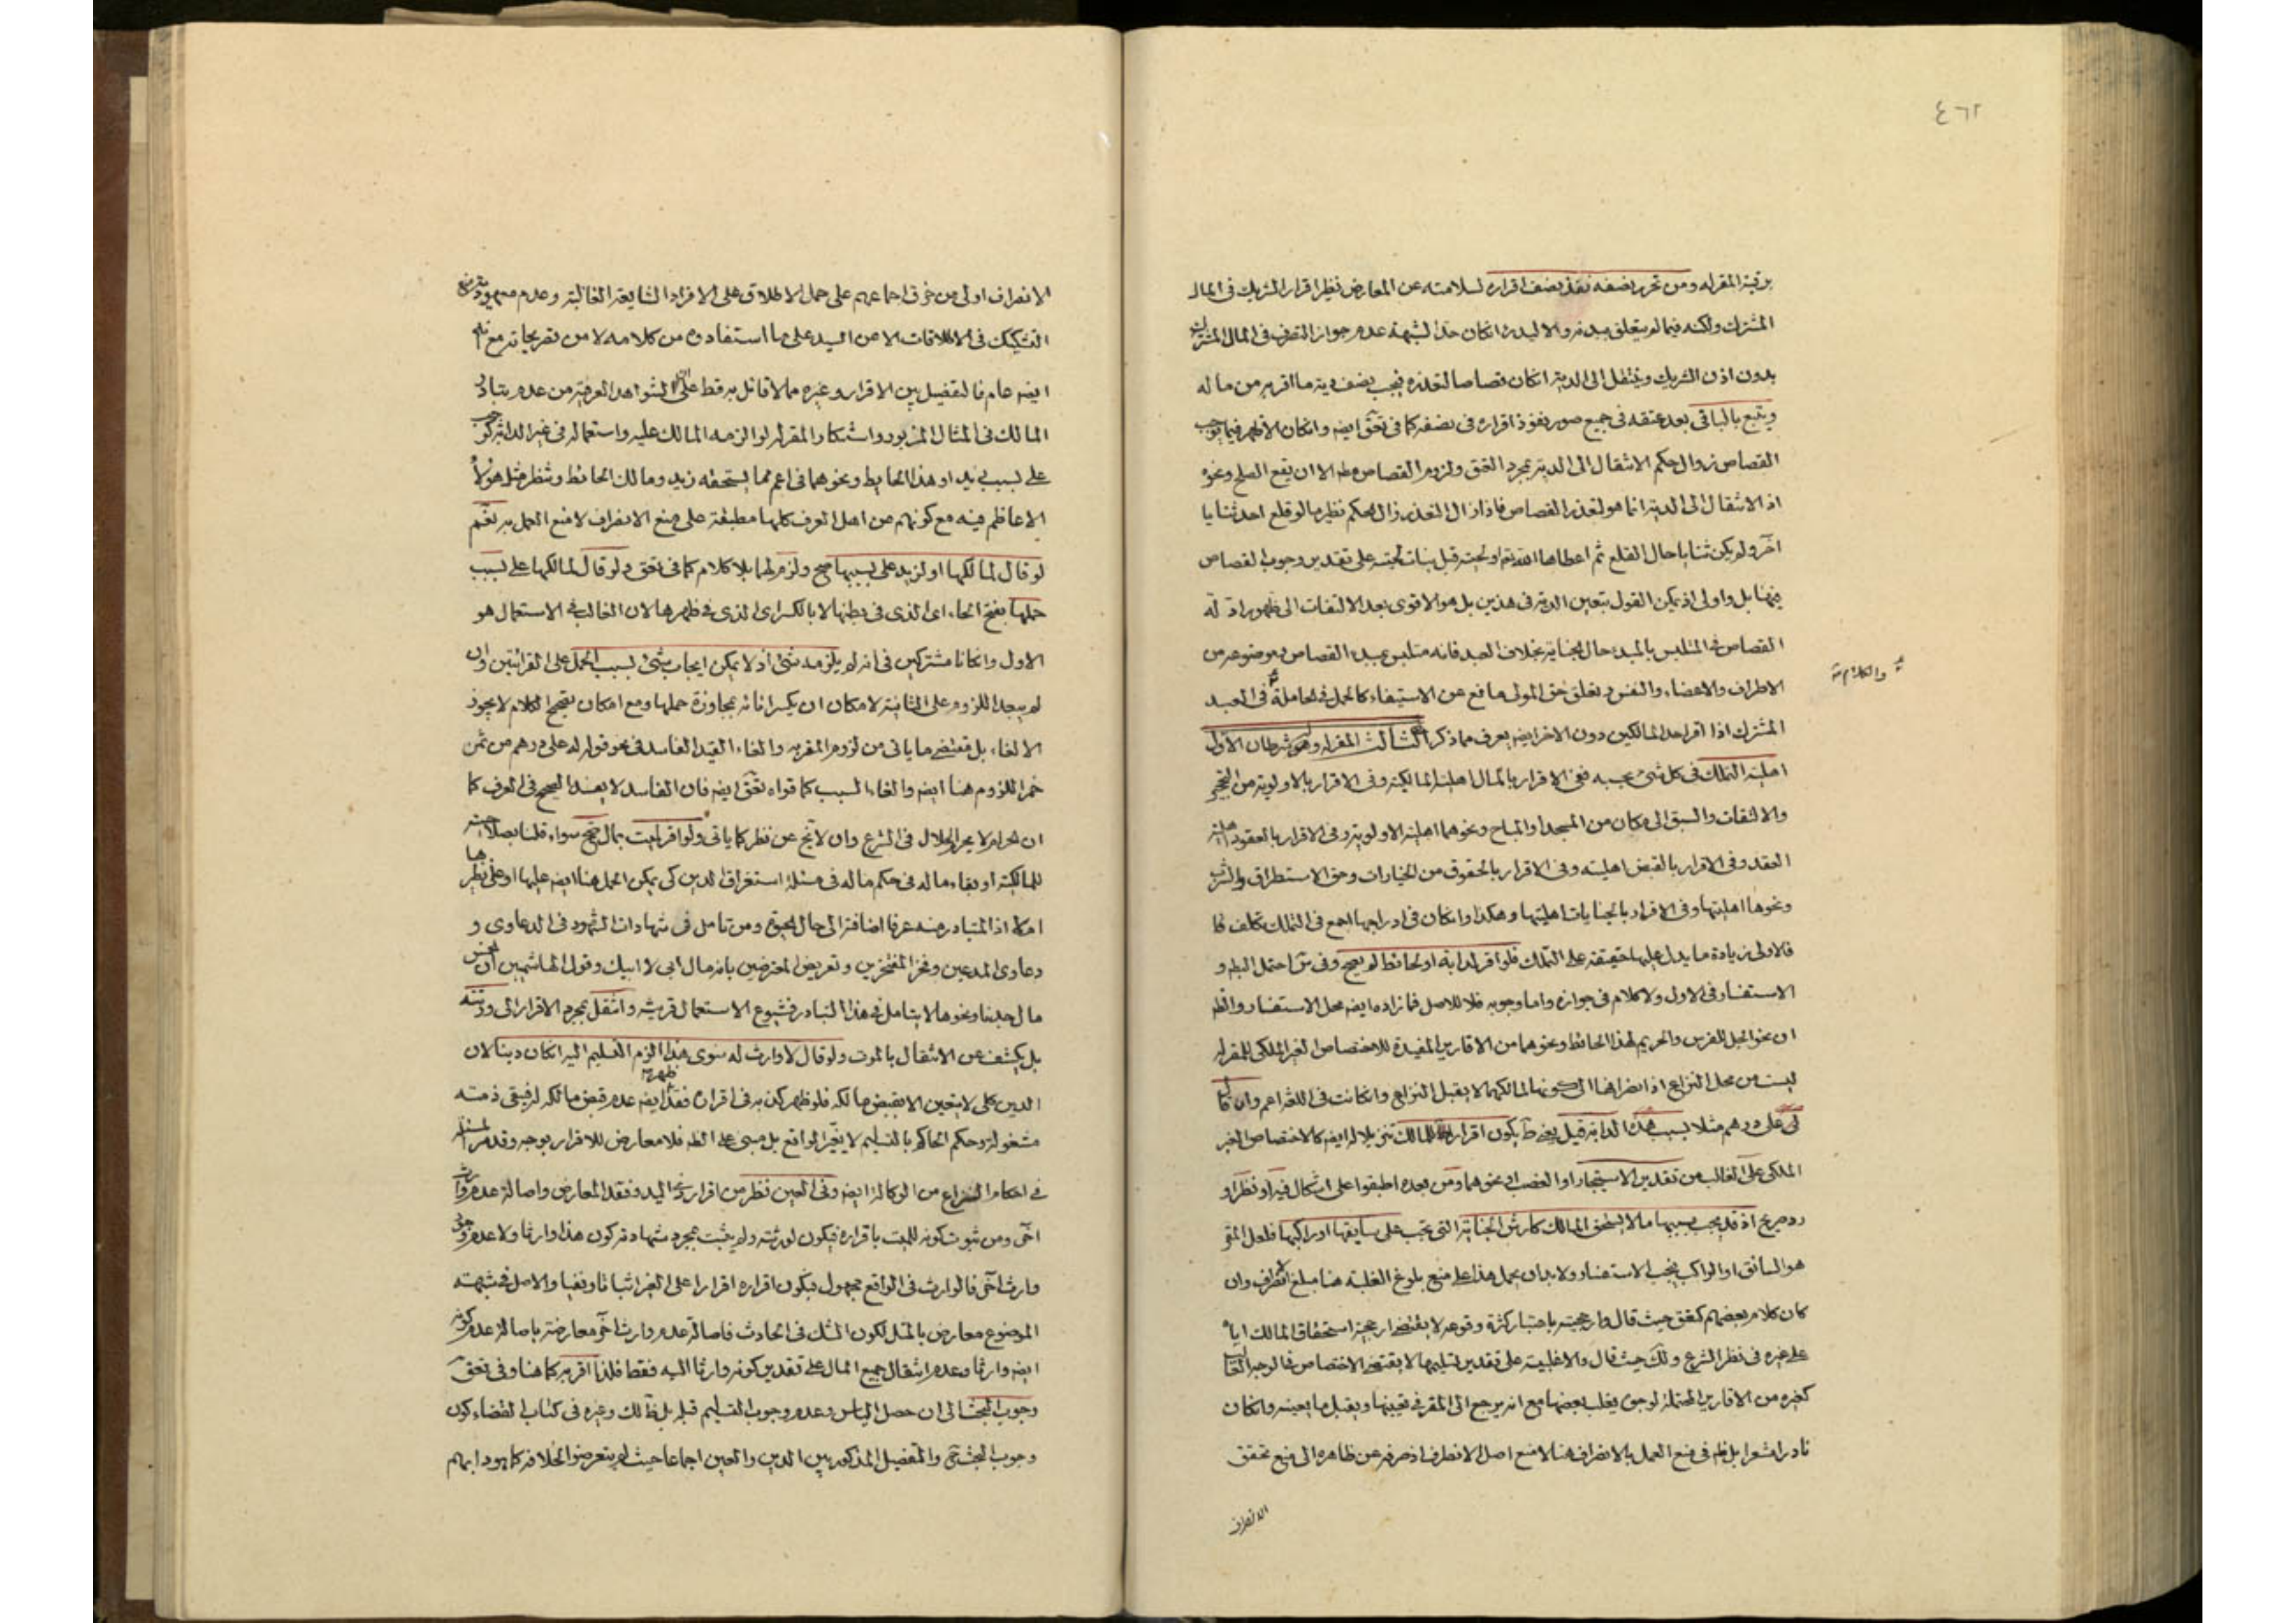 ٤٦٢
برقبة المقر له ومن تحرر نصفه نفذ نصف اقراره لسلامته عن المعارض نظير اقرار الشريك في المال
المشترك ولكنه فيما لم يتعلق ببدنه والا لبدنه انكان حدا لشبهة عدم جواز التصرف في المال المشترك
بدون اذن الشريك وينتقل الى الدية انكان قصاصا لتعذره فيجب نصف دية ما اقر به من ماله
ويتبع بالباقي بعد عتقه في جميع صور نفوذ اقراره في نصفه كما في تحق ايضه وانكان الاظهر فيما يوجب
القصاص زوال حكم الانتقال الى الدية بمجرد العتق ولزوم القصاص مطه الا ان يقع الصلح ونحوه
اذ الانتقال الى الدية انما هو لتعذر القصاص فاذا زال التعذر زال الحكم نظير ما لو قلع احد ثنايا
آخر ولم يكن ثنايا حال القلع ثم اعطاها الله تع او لحيته قبل نبات لحيته على تقدير وجوب القصاص
فيها بل واولى اذ يمكن القول بتعين الدية في هذين بل هو الاقوى بعد الالتفات الى ظهور ادلة
القصاص في المتلبس بالمبدء حال الجناية بخلاف العبد فانه متلبس بمبدء القصاص وموضوعه من
والكلام
الاطراف والاعضاء والنفس وتعلق حق المولى مانع عن الاستيفاء كالحمل في الحاملة في العبد
المشترك اذا اقر احد المالكين دون الاخر ايضه يعرف مما ذكر الثالث المقر له وله شرطان الاول
اهلية التملك في كل شئ بحسبه ففي الاقرار بالمال اهلية المالكية وفي الاقرار بالاولوية من التحجير
والالتقات والسبق الى مكان من المسجد او المباح ونحوهما اهلية الاولوية وفي الاقرار بالعقود اهلية
العقد وفي الاقرار بالقبض اهليته وفي الاقرار بالحقوق من الخيارات وحق الاستطراق والشرب
ونحوها اهليتها وفي الاقرار بالجنايات اهليتها وهكذا وانكان في ادراجها اجمع في التملك تكلف كما
فالاولى زيادة ما يدل عليها حقيقة على التملك فلو اقر لدابة او لحائط لم يصح وفي س احتمل البط و
الاستفسار في الاول ولا كلام في جوازه واما وجوبه فلا للاصل فما زاده ايضه محل الاستفسار والظ
ان نحو الجبل للفرس والحريم لهذا الحائط ونحوهما من الاقارير المفيدة للاختصاص الغير الملكي للمقر له
ليست من محل النزاع اذ انصرافها الى كونها لمالكهما لا يقبل النزاع وانكانت في اللغة اعم وان قال
لى على درهم مثلا بسبب هذه الدابة قيل يكون اقرارا للمالك تنزيلا له ايضه كالاختصاص الغير
الملكي على الغالب من تقدير الاستيجار او الغصب او نحوهما ومن بعده اطبقوا على اشكال فيه او نظر او
رد صريح اذ قد يجب بسببها ما لا يستحق المالك كارش الجناية التي تجب على سايقها او راكبها فلعل المقر
هو السائق او الراكب فيجب الاستفسار ولا بد ان يحمل هذا على منع بلوغ الغلبة هنا مبلغ الانصراف وان
كان كلام بعضهم كمقق حيث قال وارجحيته باعتبار كثرة وقوعه لا يقتضي ارجحية استحقاق المالك اياه
على غيره في نظر الشرع ولك حيث قال والاغلبية على تقدير تسليمها لا يقتضي الاختصاص فالوجه الغالب
كغيره من الاقارير المحتملة لوجوه يغلب بعضها مع انه يرجع الى المقر في تعيينها ويقبل ما يعينه وانكان
نادرا مشعرا بل ظ في منع العمل بالانصراف هنا لا منع اصل الانصراف اذ صرفه عن ظاهره الى منع تحقق
الانصراف
الانصراف اولى من خرق اجماعهم على حمل الاطلاق على الافراد الشايعة الغالبة وعدم معهودية
التشكيك في الاطلاقات الا من السيد على ما استفادوه من كلامه لا من تصريحاته مع انه
ايضه عام فالتفصيل بين الاقرار وغيره مما لا قائل به قط على ان الشواهد العرفية من عدم تبادر
المالك في المثال المزبور واستنكار المقر له لو الزمه المالك عليه واستعماله في غير الدابة كوجب
على بسبب زيد او هذا الحايط ونحوهما في اعم مما يستحقه زيد ومالك الحائط وتنظر مثل هؤلاء
الاعاظم فيه مع كونهم من اهل العرف كلها مطبقة على منع الانصراف لا منع العمل به نعم
لو قال لمالكها او لزيد على بسببها صح ولزم لهما بلا كلام كما في تحق ولو قال لمالكها على بسبب
حملها بفتح الحاء اى الذى في بطنها لا بالكسر اى الذى في ظهرها لان الغالب في الاستعمال هو
الاول وانكانا مشتركين في انه لم يلزمه شئ اذ لا يمكن ايجاب شئ بسبب الحمل على القرائتين وان
لم يبعد اللزوم على الثانية لامكان ان يكسر انائه بمجاوزة حملها ومع امكان تصحيح الكلام لا يجوز
الالغاء بل مقتضى ما ياتى من لزوم المقر به والغاء القيد الفاسد في نحو قوله له على درهم من ثمن
خمر اللزوم هنا ايضه والغاء السبب كما قواه تحق ايضه فان الفاسد لا يفسد الصحيح في العرف كما
ان الحرام لا يحرم الحلال في الشرع وان لا يخ عن نظر كما ياتى ولو اقر لميت بمال صح سواء قلنا بصلاحيته
للمالكية او بقاء ماله في حكم ماله في مسئلة استغراق الدين كى يمكن الحمل هنا ايضه عليها او على نظيرها
ام لا اذ المتبادر منه عرفا اضافته الى حال الحيوة ومن تامل في شهادات الشهود في الدعاوى و
دعاوى المدعين وفخر المفتخرين وتعريض المعترضين بانه مال ابى لا ابيك وقول الهاشميين ان الخمس
مال جدنا ونحوها لا يتامل في هذا التبادر فشيوع الاستعمال قرينة وانتقل بمجرد الاقرار الى ورثته
بل يكشف عن الانتقال بالموت ولو قال لا وارث له سوى هذا الزم التسليم اليه انكان دينا لان
الدين كلى لا يتعين الا بقبض مالكه فلو ظهر كذبه في اقراره فقد ظهر ايضه عدم قبض مالكه له فيبقى ذمته
مشغولة وحكم الحاكم بالتسليم لا يغير الواقع بل مبنى على الظ فلا معارض للاقرار بوجه وقد مر المسئلة
في احكام النزاع من الوكالة ايضه وفي العين نظر من اقرار ذى اليد وفقد المعارض واصالة عدم وارث
آخر ومن ثبوت كونه للميت باقراره فيكون لورثته ولم يثبت بمجرد شهادته كون هذا وارثا ولا عدم وجود
وارث آخر فالوارث في الواقع مجهول فيكون اقراره اقرارا على الغير اثباتا ونفيا والاصل في شبهة
الموضوع معارض بالمثل لكون الشك في الحادث فاصالة عدم وارث آخر معارضة باصالة عدم كونه
ايضه وارثا وعدم انتقال جميع المال على تقدير كونه وارثا اليه فقط فلذا اقر به كما هنا وفي تحق
وجوب البحث الى ان حصل الياس وعدم وجوب التسليم قبله بل ظ لك وغيره في كتاب القضاء كون
وجوب البحث والتفصيل المذكور بين الدين والعين اجماعا حيث لم يتعرضوا لخلافه كما هو دابهم